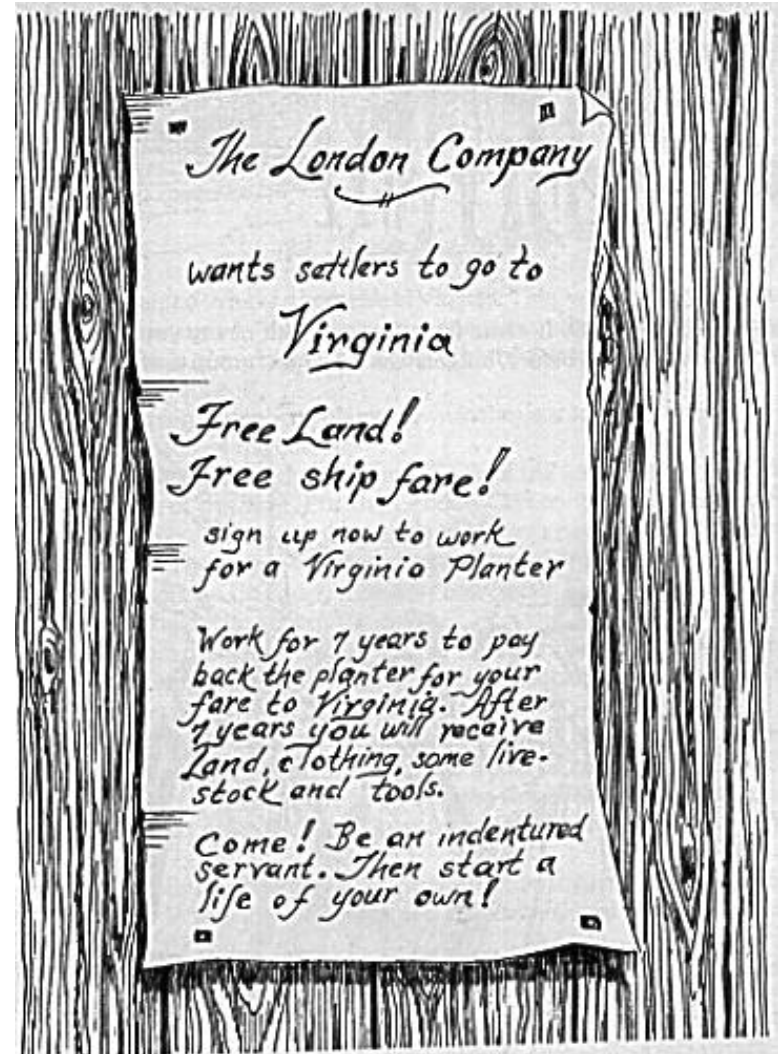 The London Company
wants settlers to go to
Virginia
Free Land!
Free ship fare!
sign up now to work
for a Virginia Planter
Work for 7 years to pay
back the planter for your
fare to Virginia. After
7 years you will receive
Land, clothing, some live-
stock and tools.
Come! Be an indentured
servant. Then start a
life of your own!